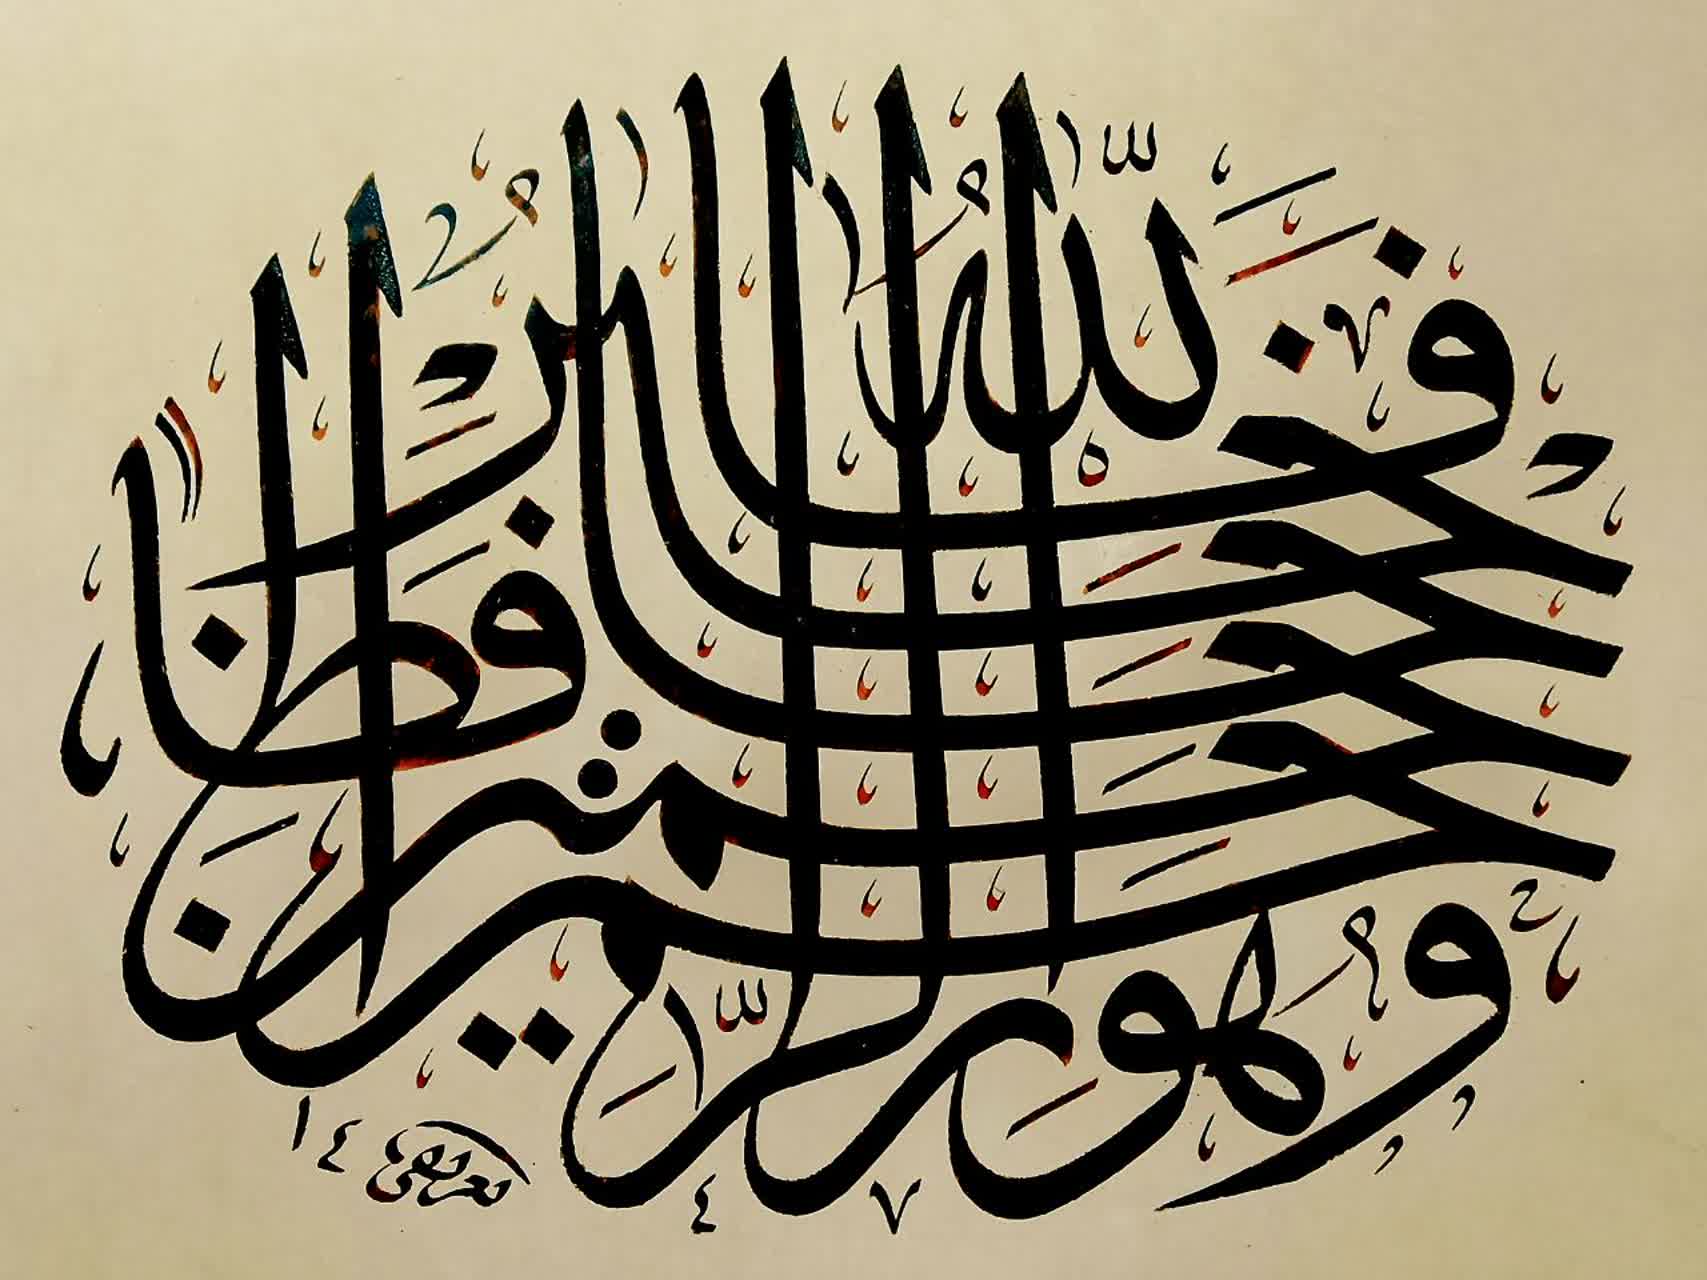 فَاللّٰهُ خَيْرٌ حَافِظًا وَهُوَ أَرْحَمُ الرَّاحِمِينَ
١٤٤٧